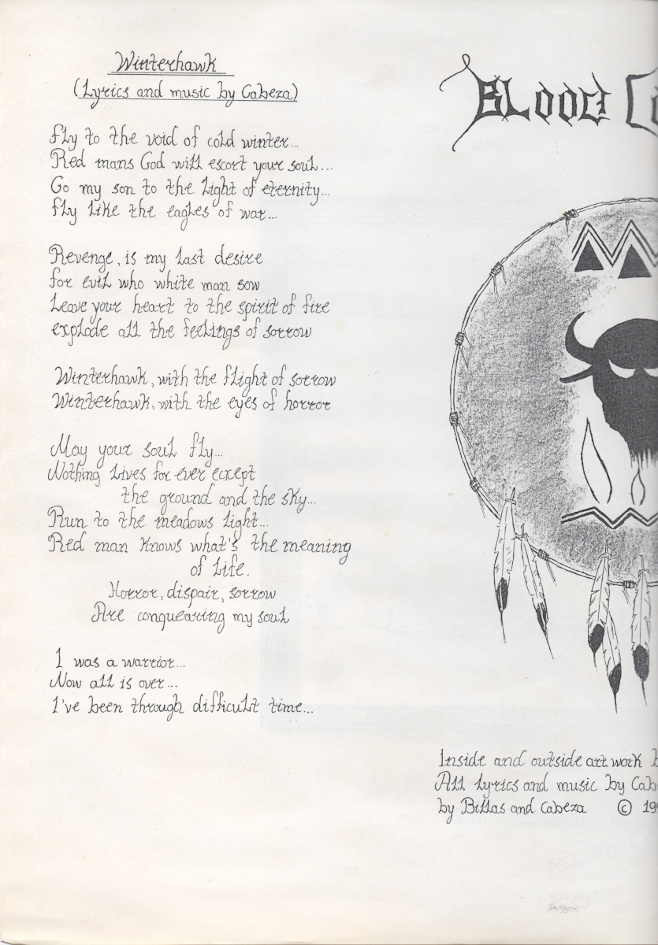 Winterhawk
(Lyrics and music by Cabeza)
Fly to the void of cold winter...
Red mans God will escort your soul...
Go my son to the light of eternity...
fly like the eagles of war...
Revenge, is my last desire
for evil who white man sow
Leave your heart to the spirit of fire
explode all the feelings of sorrow
Winterhawk, with the flight of sorrow
Winterhawk, with the eyes of horror
May your soul fly...
Nothing lives for ever ecxept
the ground and the sky...
Run to the meadows light...
Red man knows what's the meaning
of life.
Horror, dispair, sorrow
Are conquearing my soul
I was a warrior...
Now all is over...
I've been through difficult time...
BLOOD
Inside and outside art work
All lyrics and music by Cab
by Billas and Cabeza © 19